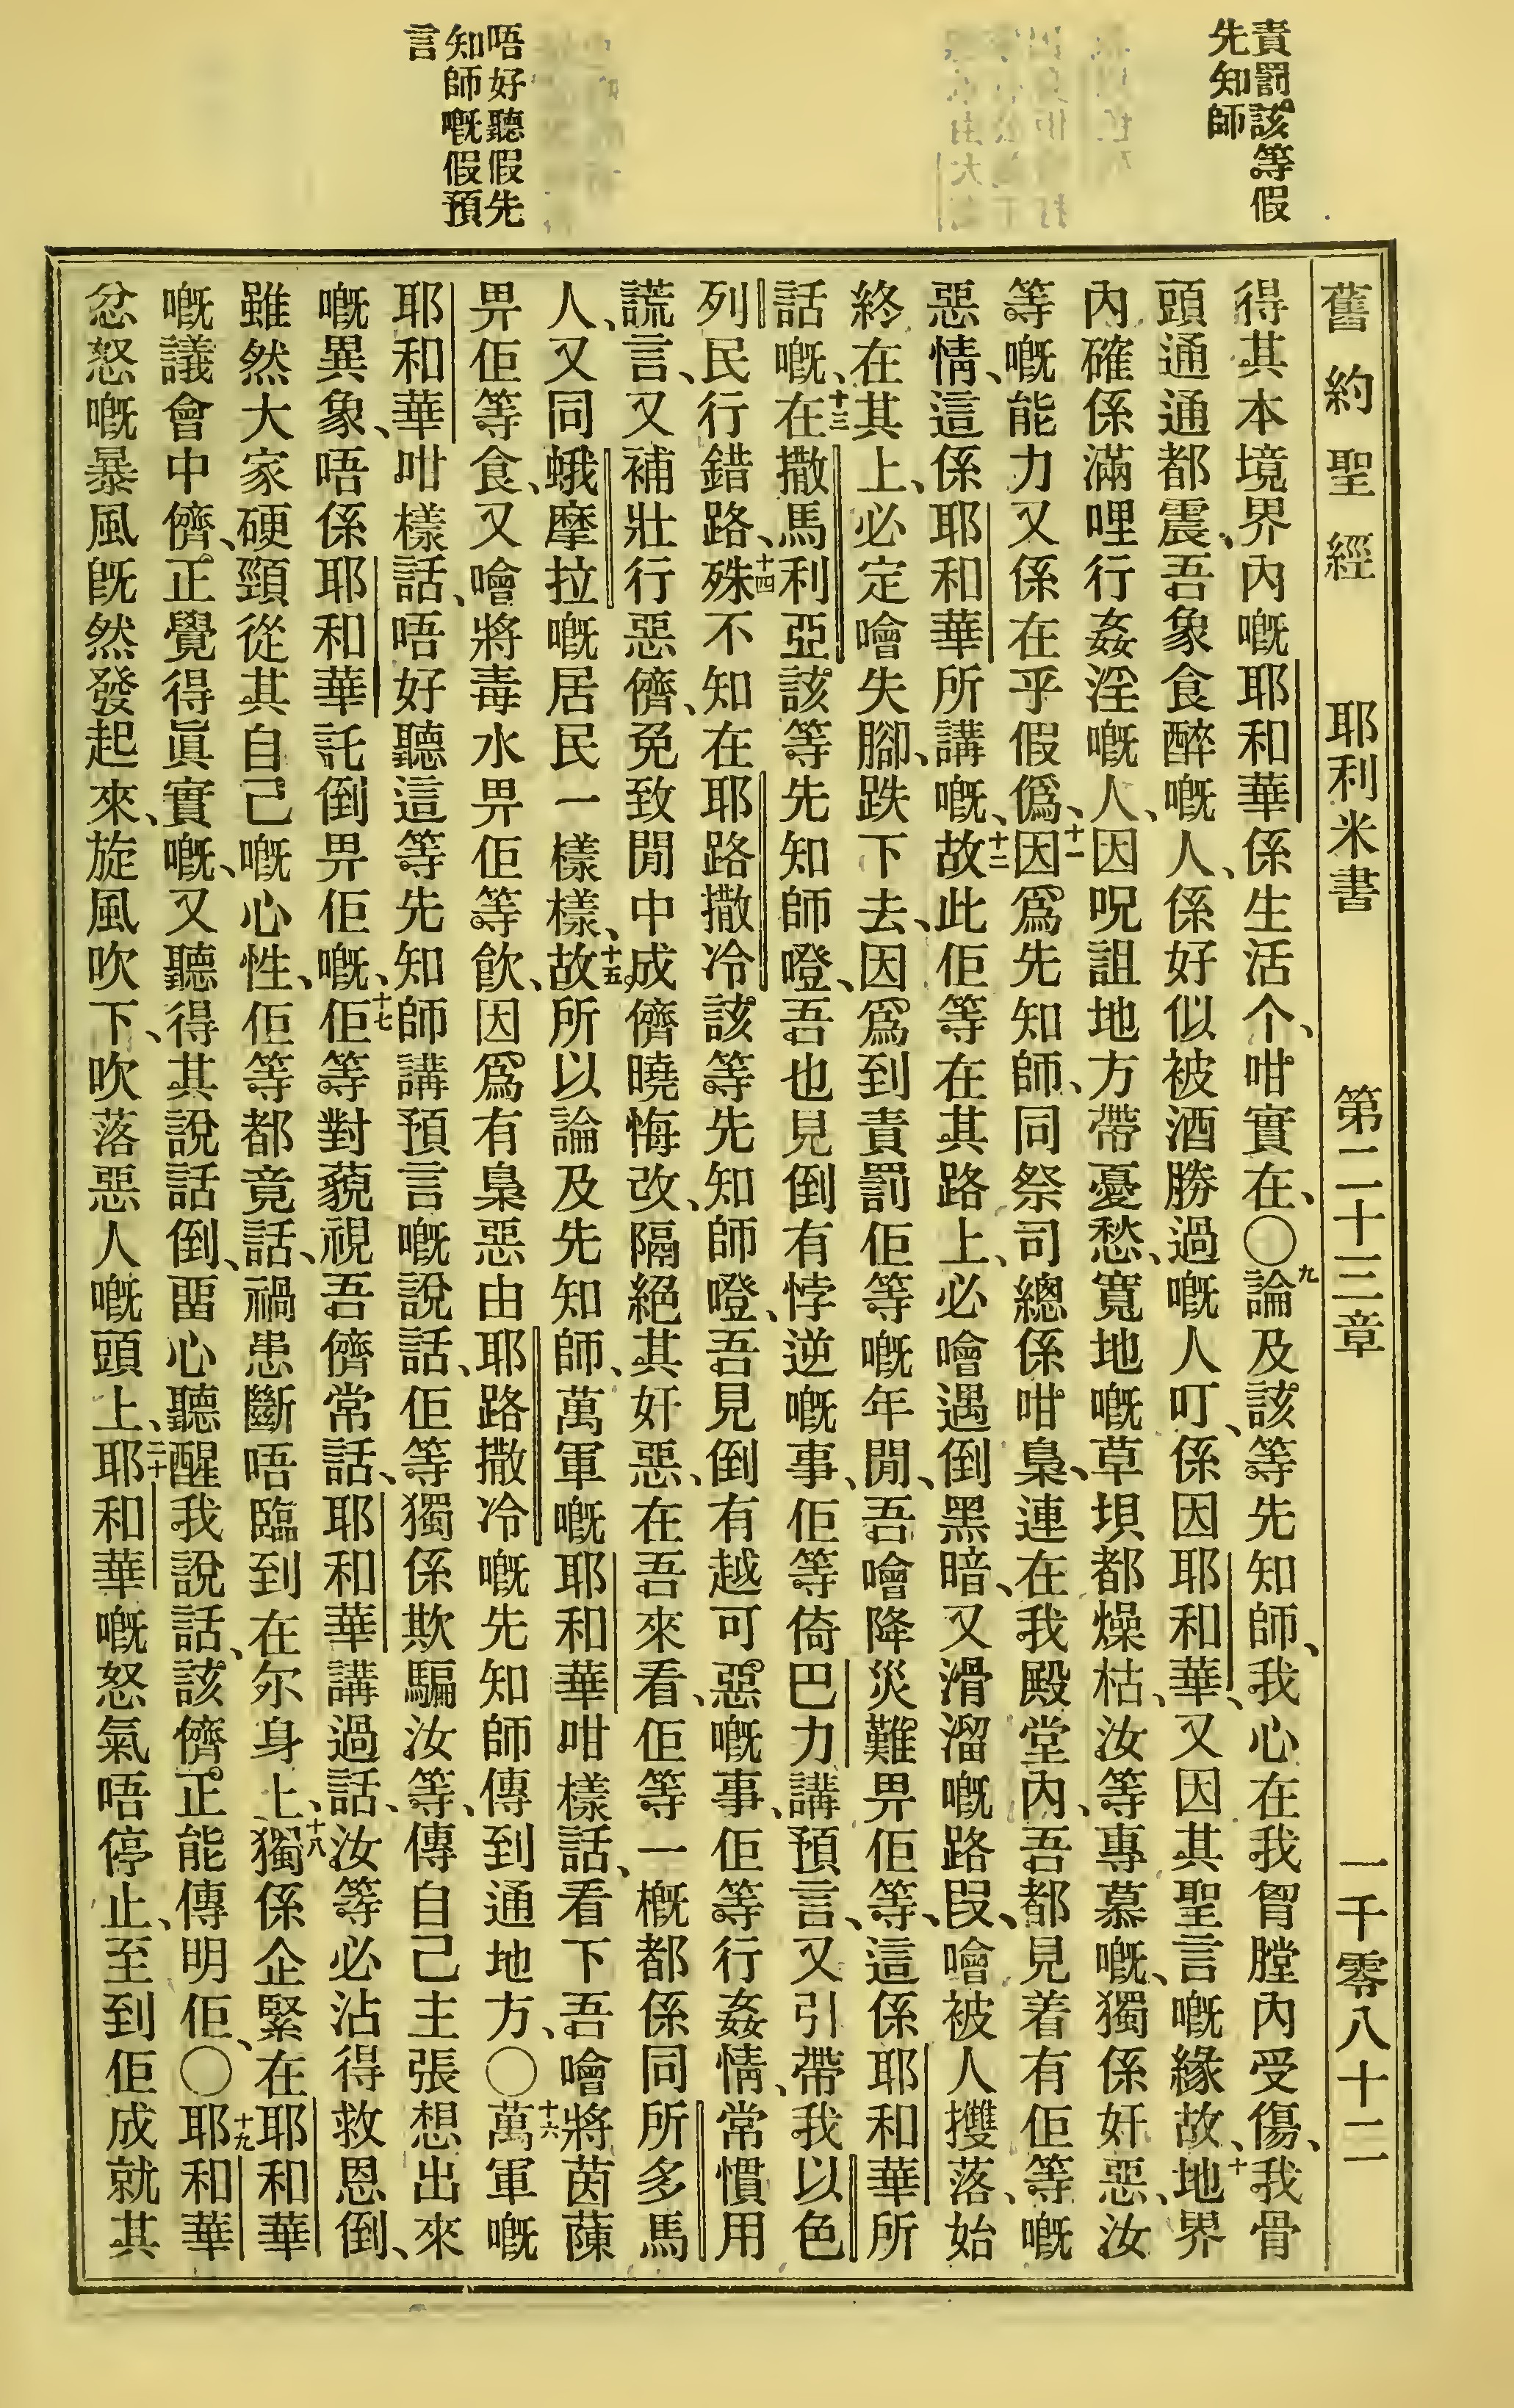 責罰該等假
先知師
唔好聽假先
知師嘅假預
言
舊約聖經 耶利米書 第二十三章 一千零八十二
得其本境界內嘅耶和華係生活个、咁實在、〇九論及該等先知師、我心在我胷膛內受傷、我骨
頭通通都震、吾象食醉嘅人、係好似被酒勝過嘅人叮、係因耶和華、又因其聖言嘅緣故、十地界
內確係滿哩行姦淫嘅人、因呪詛地方帶憂愁、寬地嘅草垻都燥枯、汝等專慕嘅、獨係奸惡、汝
等嘅能力又係在乎假僞、十一因爲先知師、同祭司總係咁梟、連在我殿堂內、吾都見着有佢等嘅
惡情、這係耶和華所講嘅、十二故此佢等在其路上、必噲遇倒黑暗、又滑溜嘅路段、噲被人㩳落、始
終在其上、必定噲失腳、跌下去、因爲到責罰佢等嘅年閒、吾噲降災難畀佢等、這係耶和華所
話嘅、十三在撒馬利亞該等先知師噔、吾也見倒有悖逆嘅事、佢等倚巴力講預言、又引帶我以色
列民行錯路、十四殊不知在耶路撒冷該等先知師噔、吾見倒有越可惡嘅事、佢等行姦情、常慣用
謊言、又補壯行惡儕、免致閒中成儕曉悔改、隔絕其奸惡、在吾來看、佢等一概都係同所多馬
人、又同蛾摩拉嘅居民一樣樣、十五故所以論及先知師、萬軍嘅耶和華咁樣話、看下吾噲將茵蔯
畀佢等食、又噲將毒水畀佢等飮、因爲有梟惡由耶路撒冷嘅先知師傳到通地方、〇十六萬軍嘅
耶和華咁樣話、唔好聽這等先知師講預言嘅說話、佢等獨係欺騙汝等、傳自己主張想出來
嘅異象、唔係耶和華託倒畀佢嘅、十七佢等對藐視吾儕常話、耶和華講過話、汝等必沾得救恩倒、
雖然大家硬頸從其自己嘅心性、佢等都竟話、禍患斷唔臨到在尔身上、十八獨係企緊在耶和華
嘅議會中儕、正覺得眞實嘅、又聽得其說話倒、畱心聽醒我說話、該儕正能傳明佢、〇十九耶和華
忿怒嘅暴風旣然發起來、旋風吹下、吹落惡人嘅頭上、二十耶和華嘅怒氣唔停止、至到佢成就其